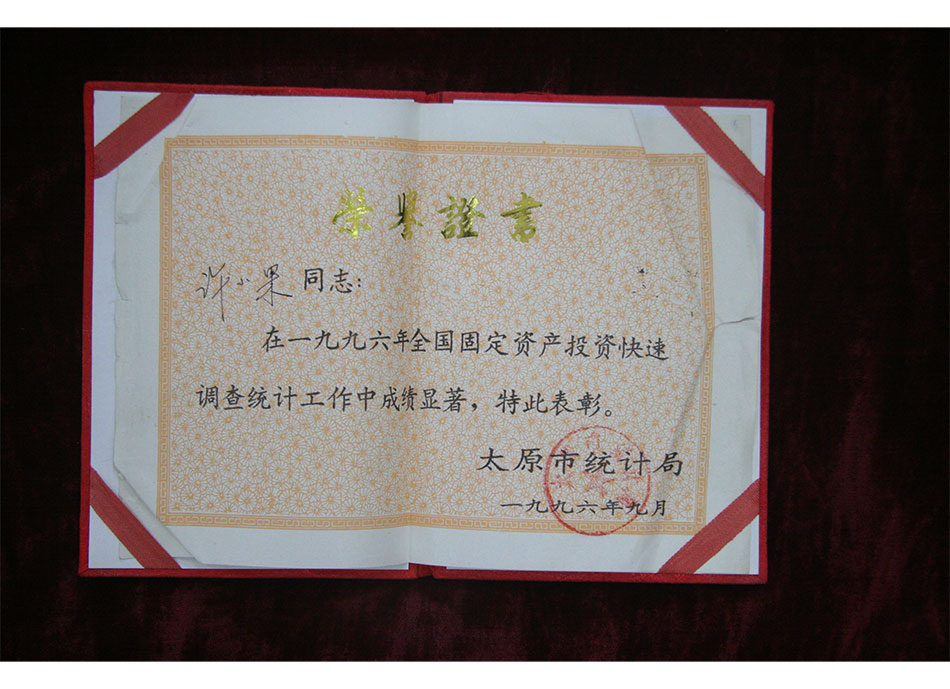 榮譽證書
许小果 同志:
在一九九六年全国固定资产投资快速
调查统计工作中成绩显著，特此表彰。
太原市统计局
一九九六年九月